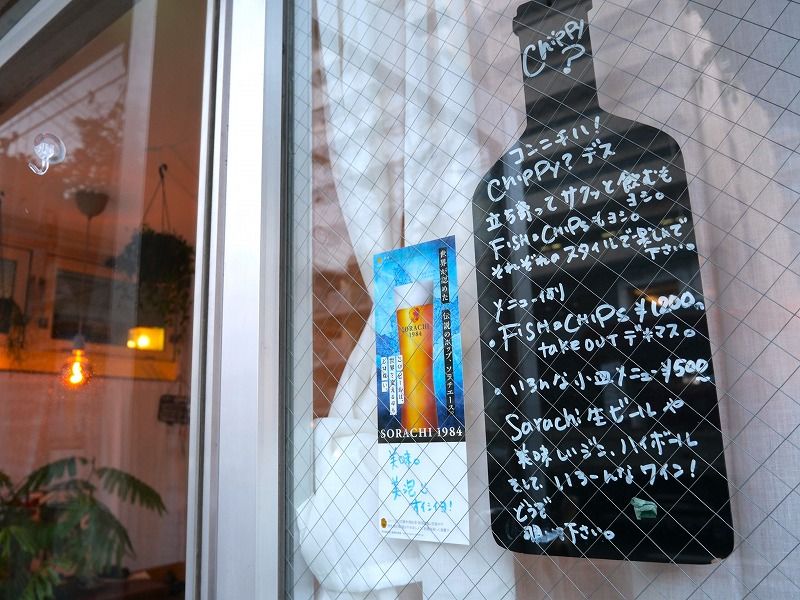 Chippy
?
コンニチハ!
Chippy?デス
立ち寄ってサクッと飲むも
ヨシ。
FISH&CHIPSもヨシ。
それぞれのスタイルで楽しんで
下さい。
メニュー
・FISH&CHIPS ¥1200
take outデキマス。
・いろんな小皿メニュー ¥500〜
Sorachi 生ビールや
美味しいジン、ハイボール
そして、いろーんなワイン!
どうぞ
下さい。
世界が認めた
伝説のホップ、ソラチエース。
SORACHI
1984
このビールは、
世界を変えるかも
しれない。
SORACHI 1984
美味。
美泡。
オイシイヨ!